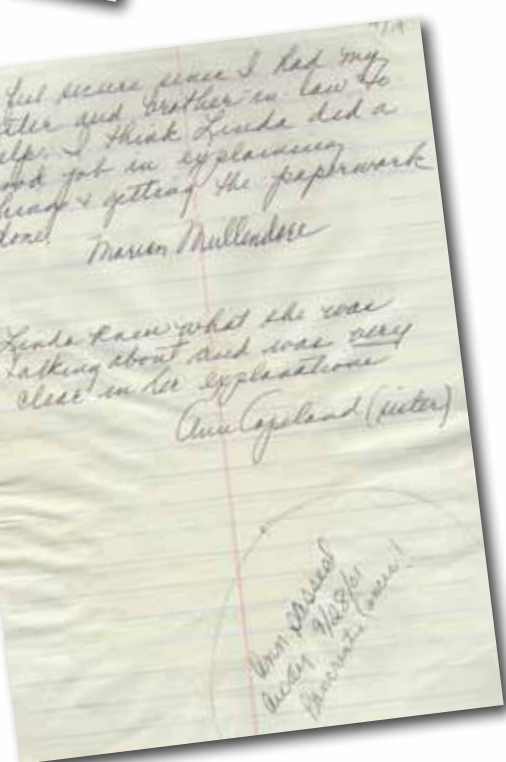 feel secure since I had my
ster and brother in law to
elp. I think Linda did a
ood job in explaining
hings & getting the paperwork
done.
Marion Mullendore
Linda knew what she was
talking about and was very
clear in her explanations
Ann Copeland (sister)
Ann passed
away 9/28/01
Pancreatic Cancer!